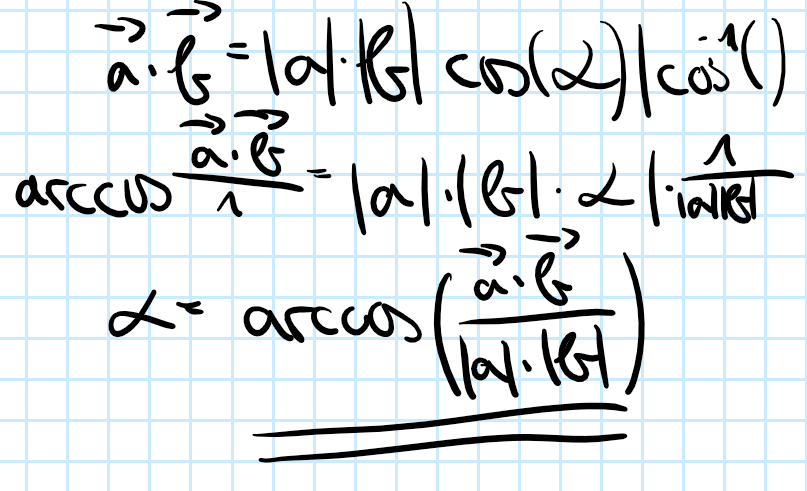 a⃗ · b⃗ = |a| · |b| cos(α) | cos⁻¹()
arccos (a⃗ · b⃗)/1 = |a| · |b| · α | · 1/(|a||b|)
α = arccos((a⃗ · b⃗)/(|a| · |b|))